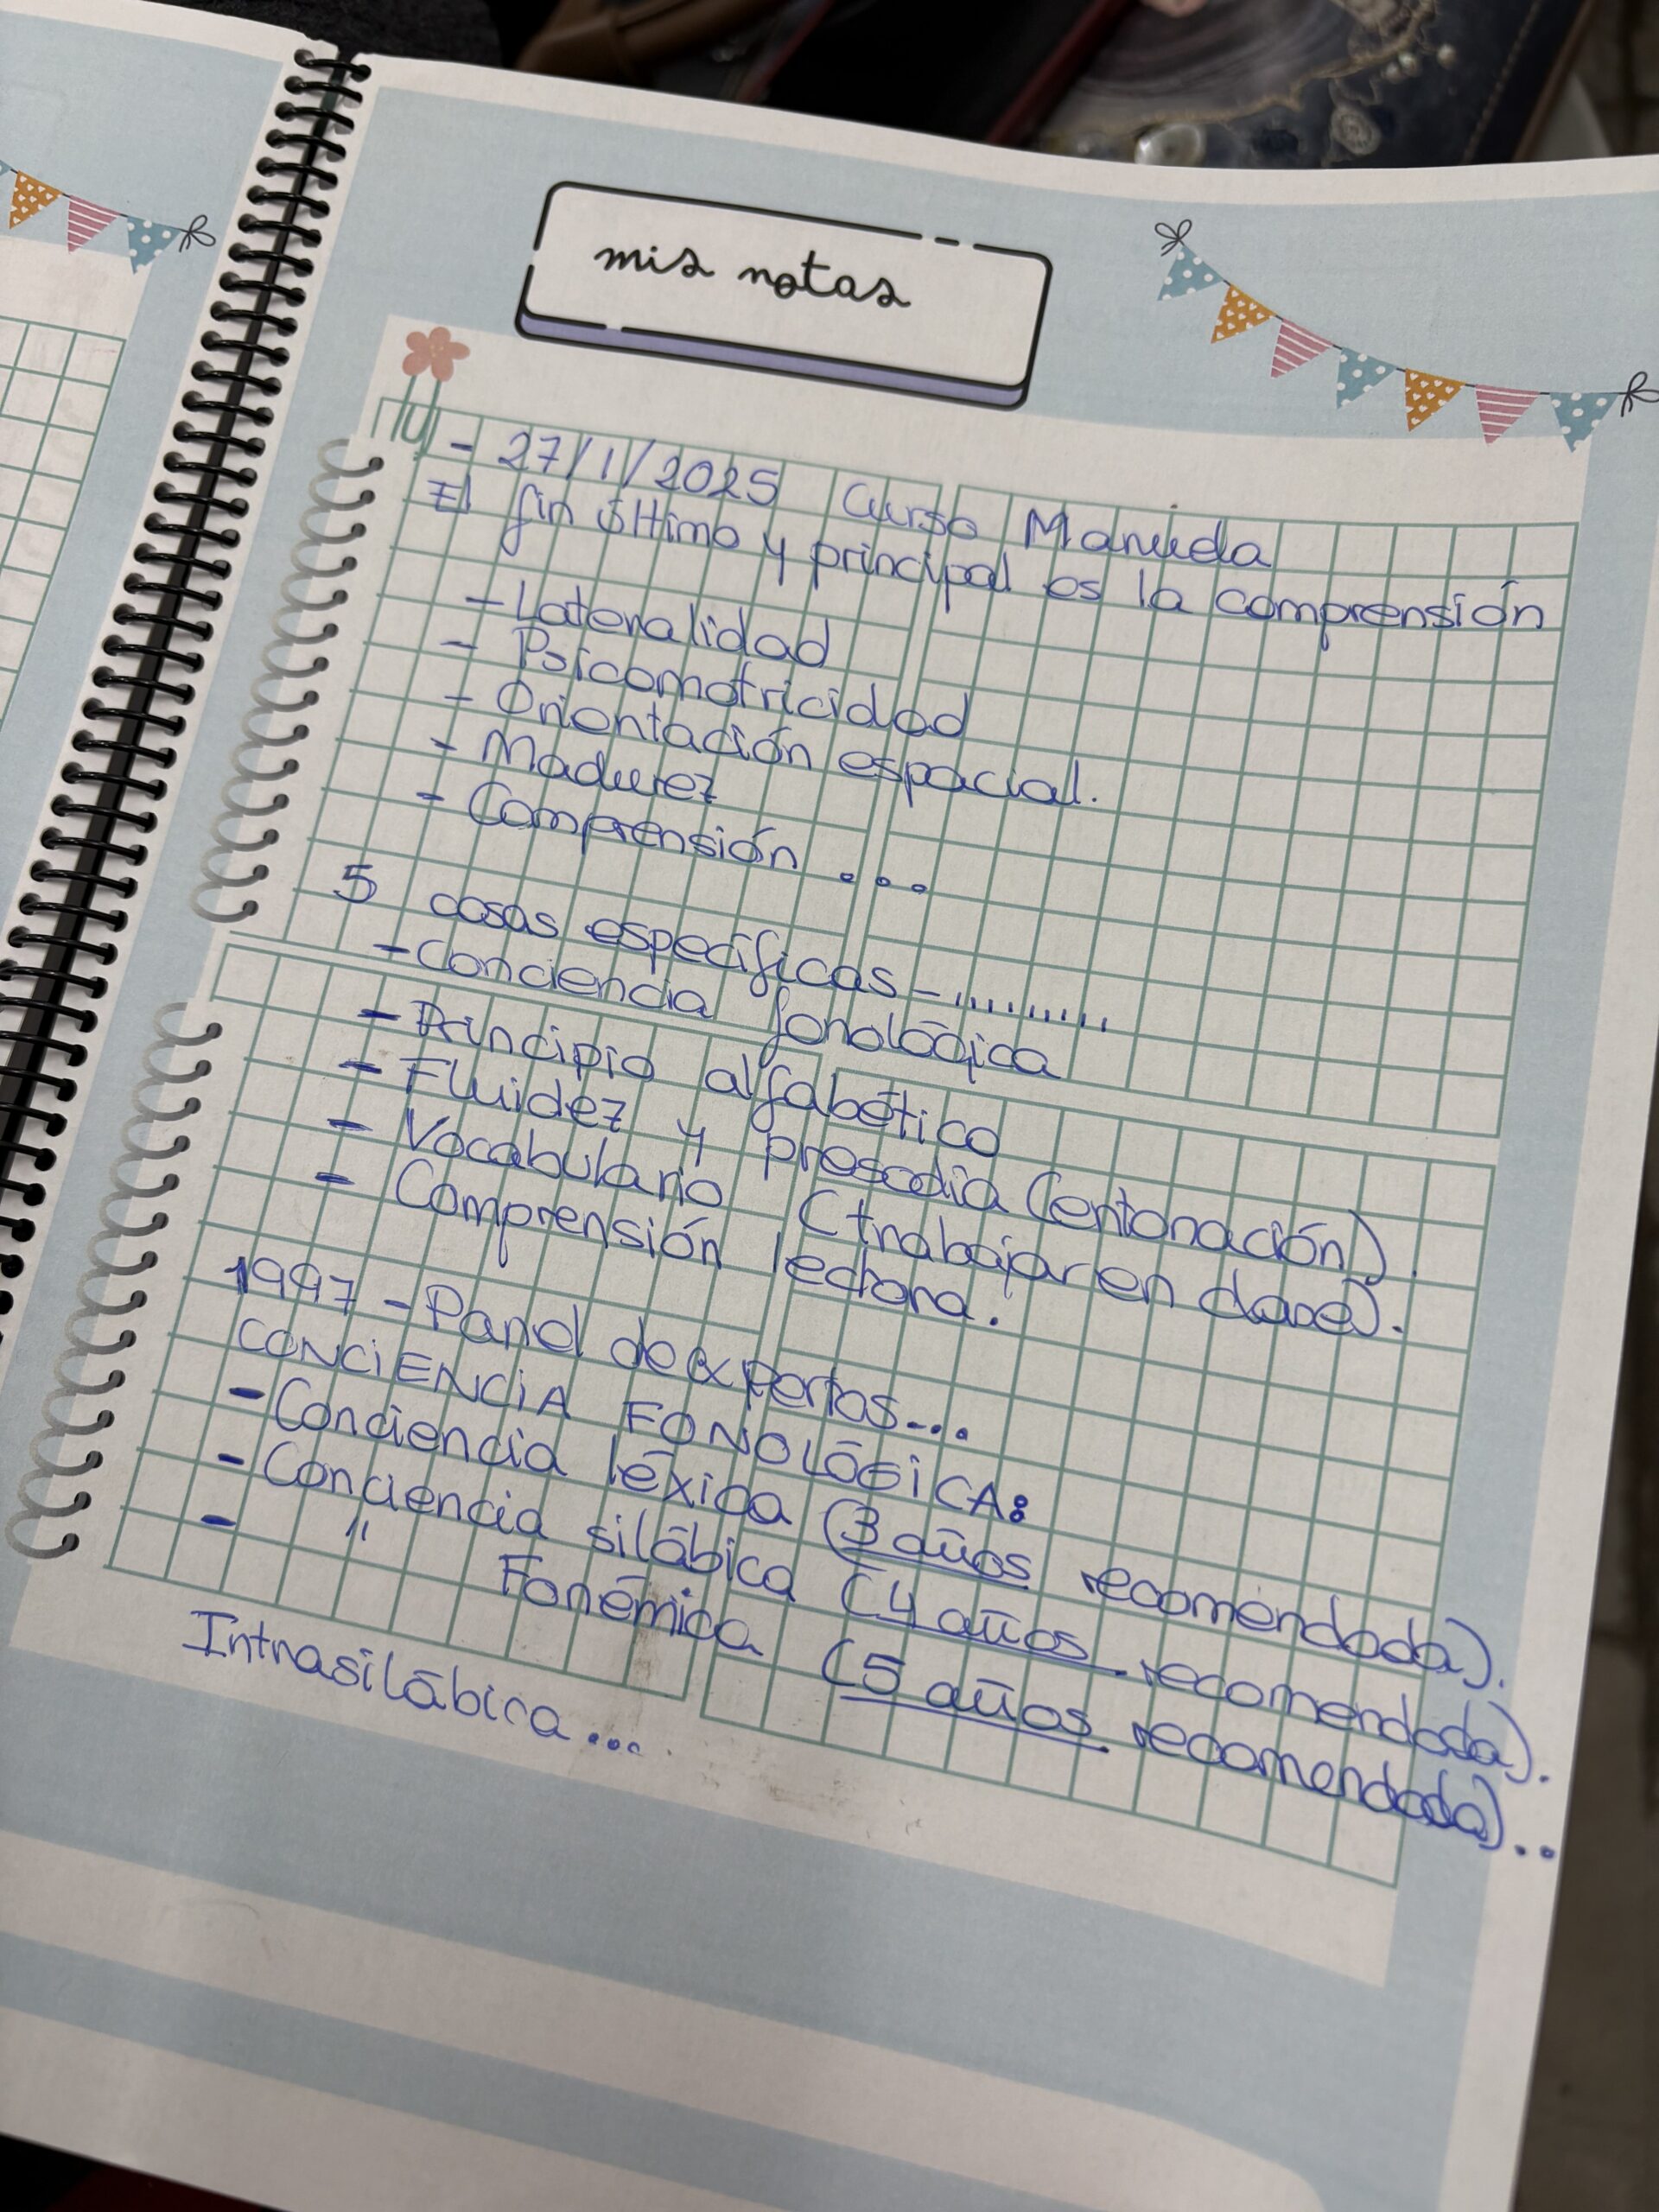 mis notas
- 27/1/2025 Curso Manuela
El fin último y principal es la comprensión
- Lateralidad
- Psicomotricidad
- Orientación espacial.
- Madurez
- Comprensión ...
5 cosas específicas - .........
- Conciencia fonológica
- Principio alfabético
- Fluidez y prosodia (entonación).
- Vocabulario (trabajar en clase).
- Comprensión lectora.
1997 - Panel de expertos...
CONCIENCIA FONOLÓGICA:
- Conciencia léxica (3 años recomendada).
- Conciencia silábica (4 años recomendada).
- " Fonémica (5 años recomendada)..
Intrasilábica...